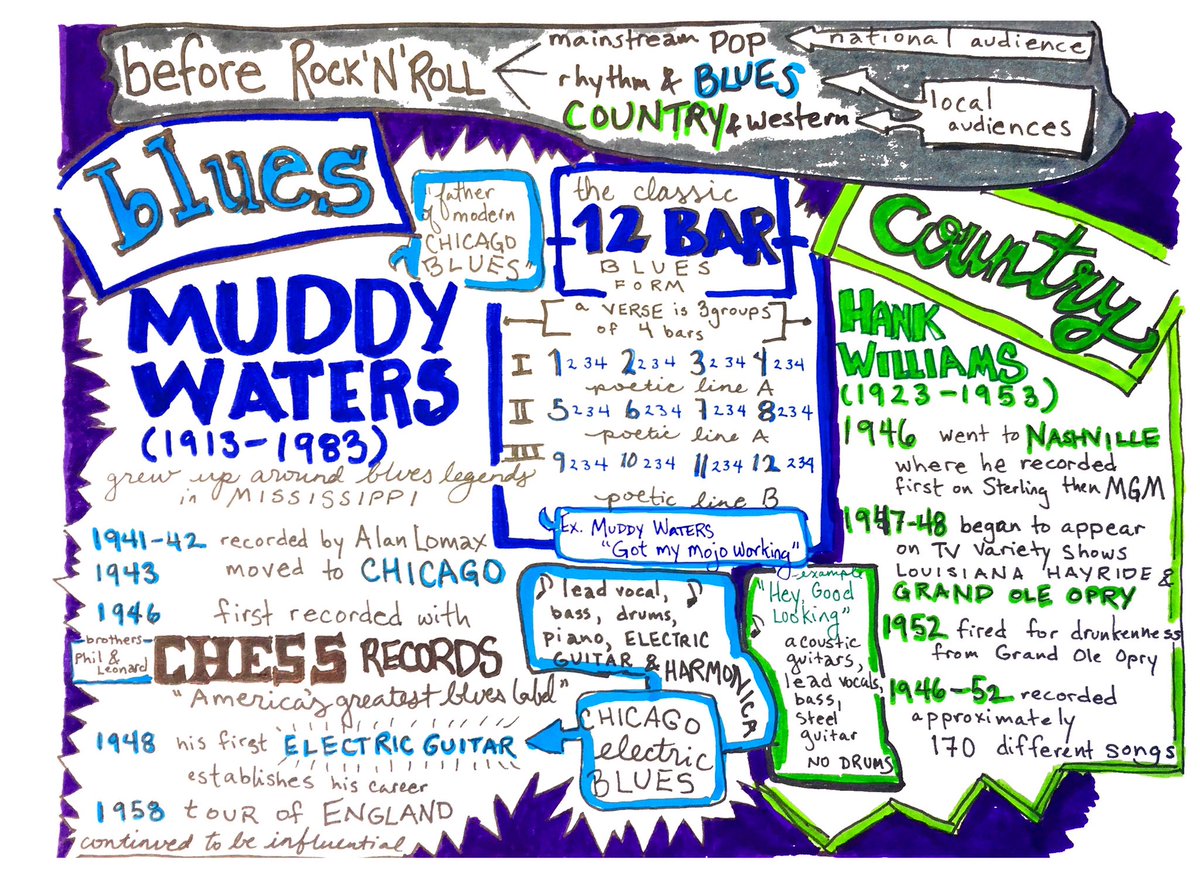 before ROCK'N'ROLL
mainstream POP
rhythm & BLUES
COUNTRY & western
national audience
local
audiences
blues
"father
of modern
CHICAGO
BLUES"
MUDDY
WATERS
(1913-1983)
grew up around blues legends
in MISSISSIPPI
1941-42 recorded by Alan Lomax
1943 moved to CHICAGO
1946 first recorded with
brothers
Phil &
Leonard
CHESS RECORDS
"America's greatest blues label"
1948 his first ELECTRIC GUITAR
establishes his career
1958 tour of ENGLAND
continued to be influential
the classic
12 BAR
BLUES
FORM
a VERSE is 3 groups
of 4 bars
I 1 2 3 4 2 2 3 4 3 2 3 4 4 2 3 4
poetic line A
II 5 2 3 4 6 2 3 4 7 2 3 4 8 2 3 4
poetic line A
III 9 2 3 4 10 2 3 4 11 2 3 4 12 2 3 4
poetic line B
Ex. MUDDY WATERS
"Got my mojo working"
lead vocal,
bass, drums,
piano, ELECTRIC
GUITAR & HARMONICA
CHICAGO
electric
BLUES
country
HANK
WILLIAMS
(1923-1953)
1946 went to NASHVILLE
where he recorded
first on Sterling then MGM
1947-48 began to appear
on TV variety shows
LOUISIANA HAYRIDE &
GRAND OLE OPRY
1952 fired for drunkenness
from Grand Ole Opry
1946-52 recorded
approximately
170 different songs
example
"Hey, Good
Looking"
acoustic
guitars,
lead vocals,
bass,
steel
guitar
NO DRUMS